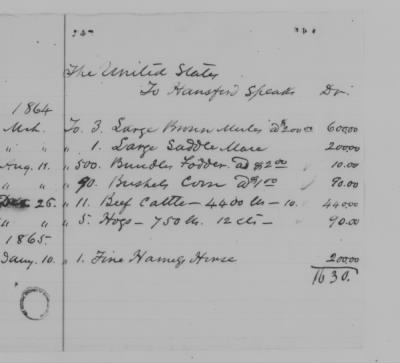 The United States
To Hansford Speaks Dr.
1864
Mch. To 3. Large Brown Mules @ 200.00 600.00
" " " 1. Large Saddle Mare 200.00
Aug. 18. " 500. Bundles Fodder @ $2.00 10.00
" " " 90. Bushels Corn @ $1.00 90.00
26. " 11. Beef Cattle – 4400 lbs – 10. 440.00
" " " 5. Hogs – 750 lbs. 12 cts – 90.00
1865.
Jany. 10. " 1. Fine Harness Horse 200.00
1630.